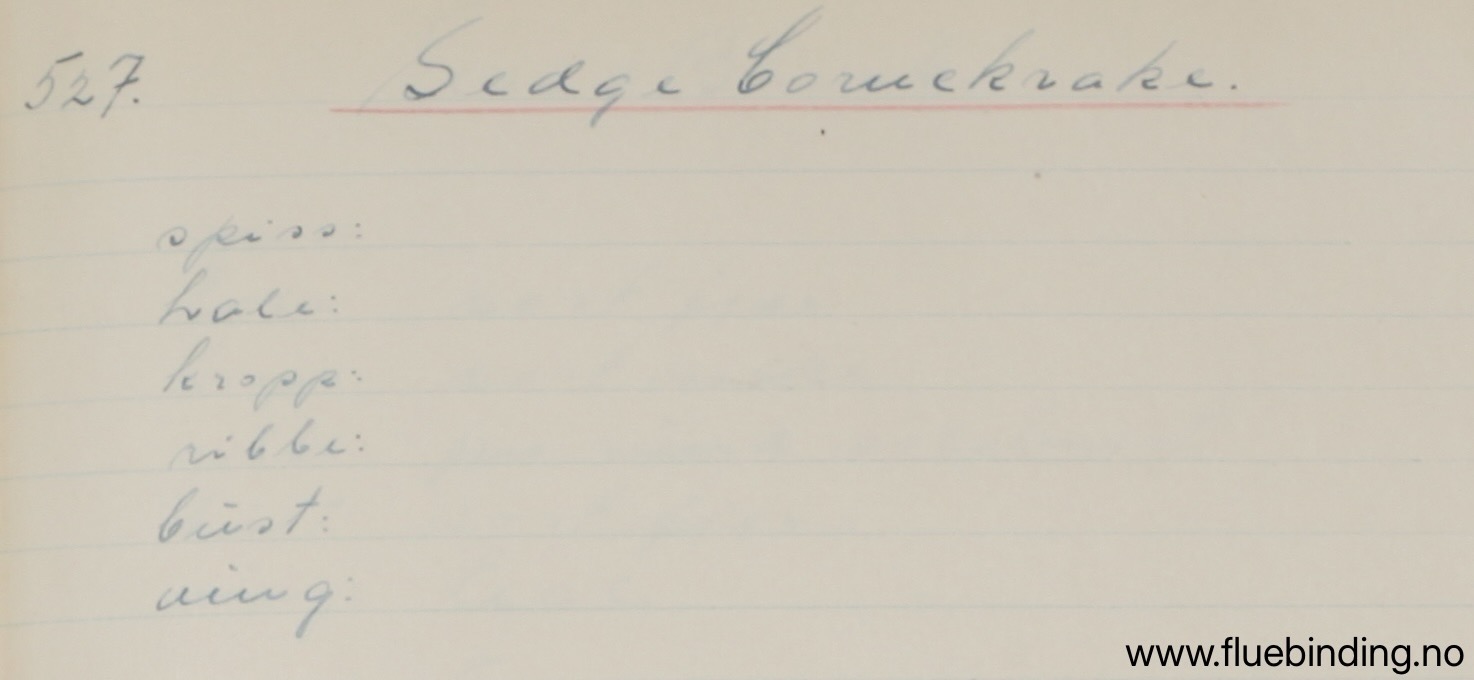 527. Sedge Cornckrake.
spiss:
hale:
kropp:
ribbe:
bust:
ving:
www.fluebinding.no